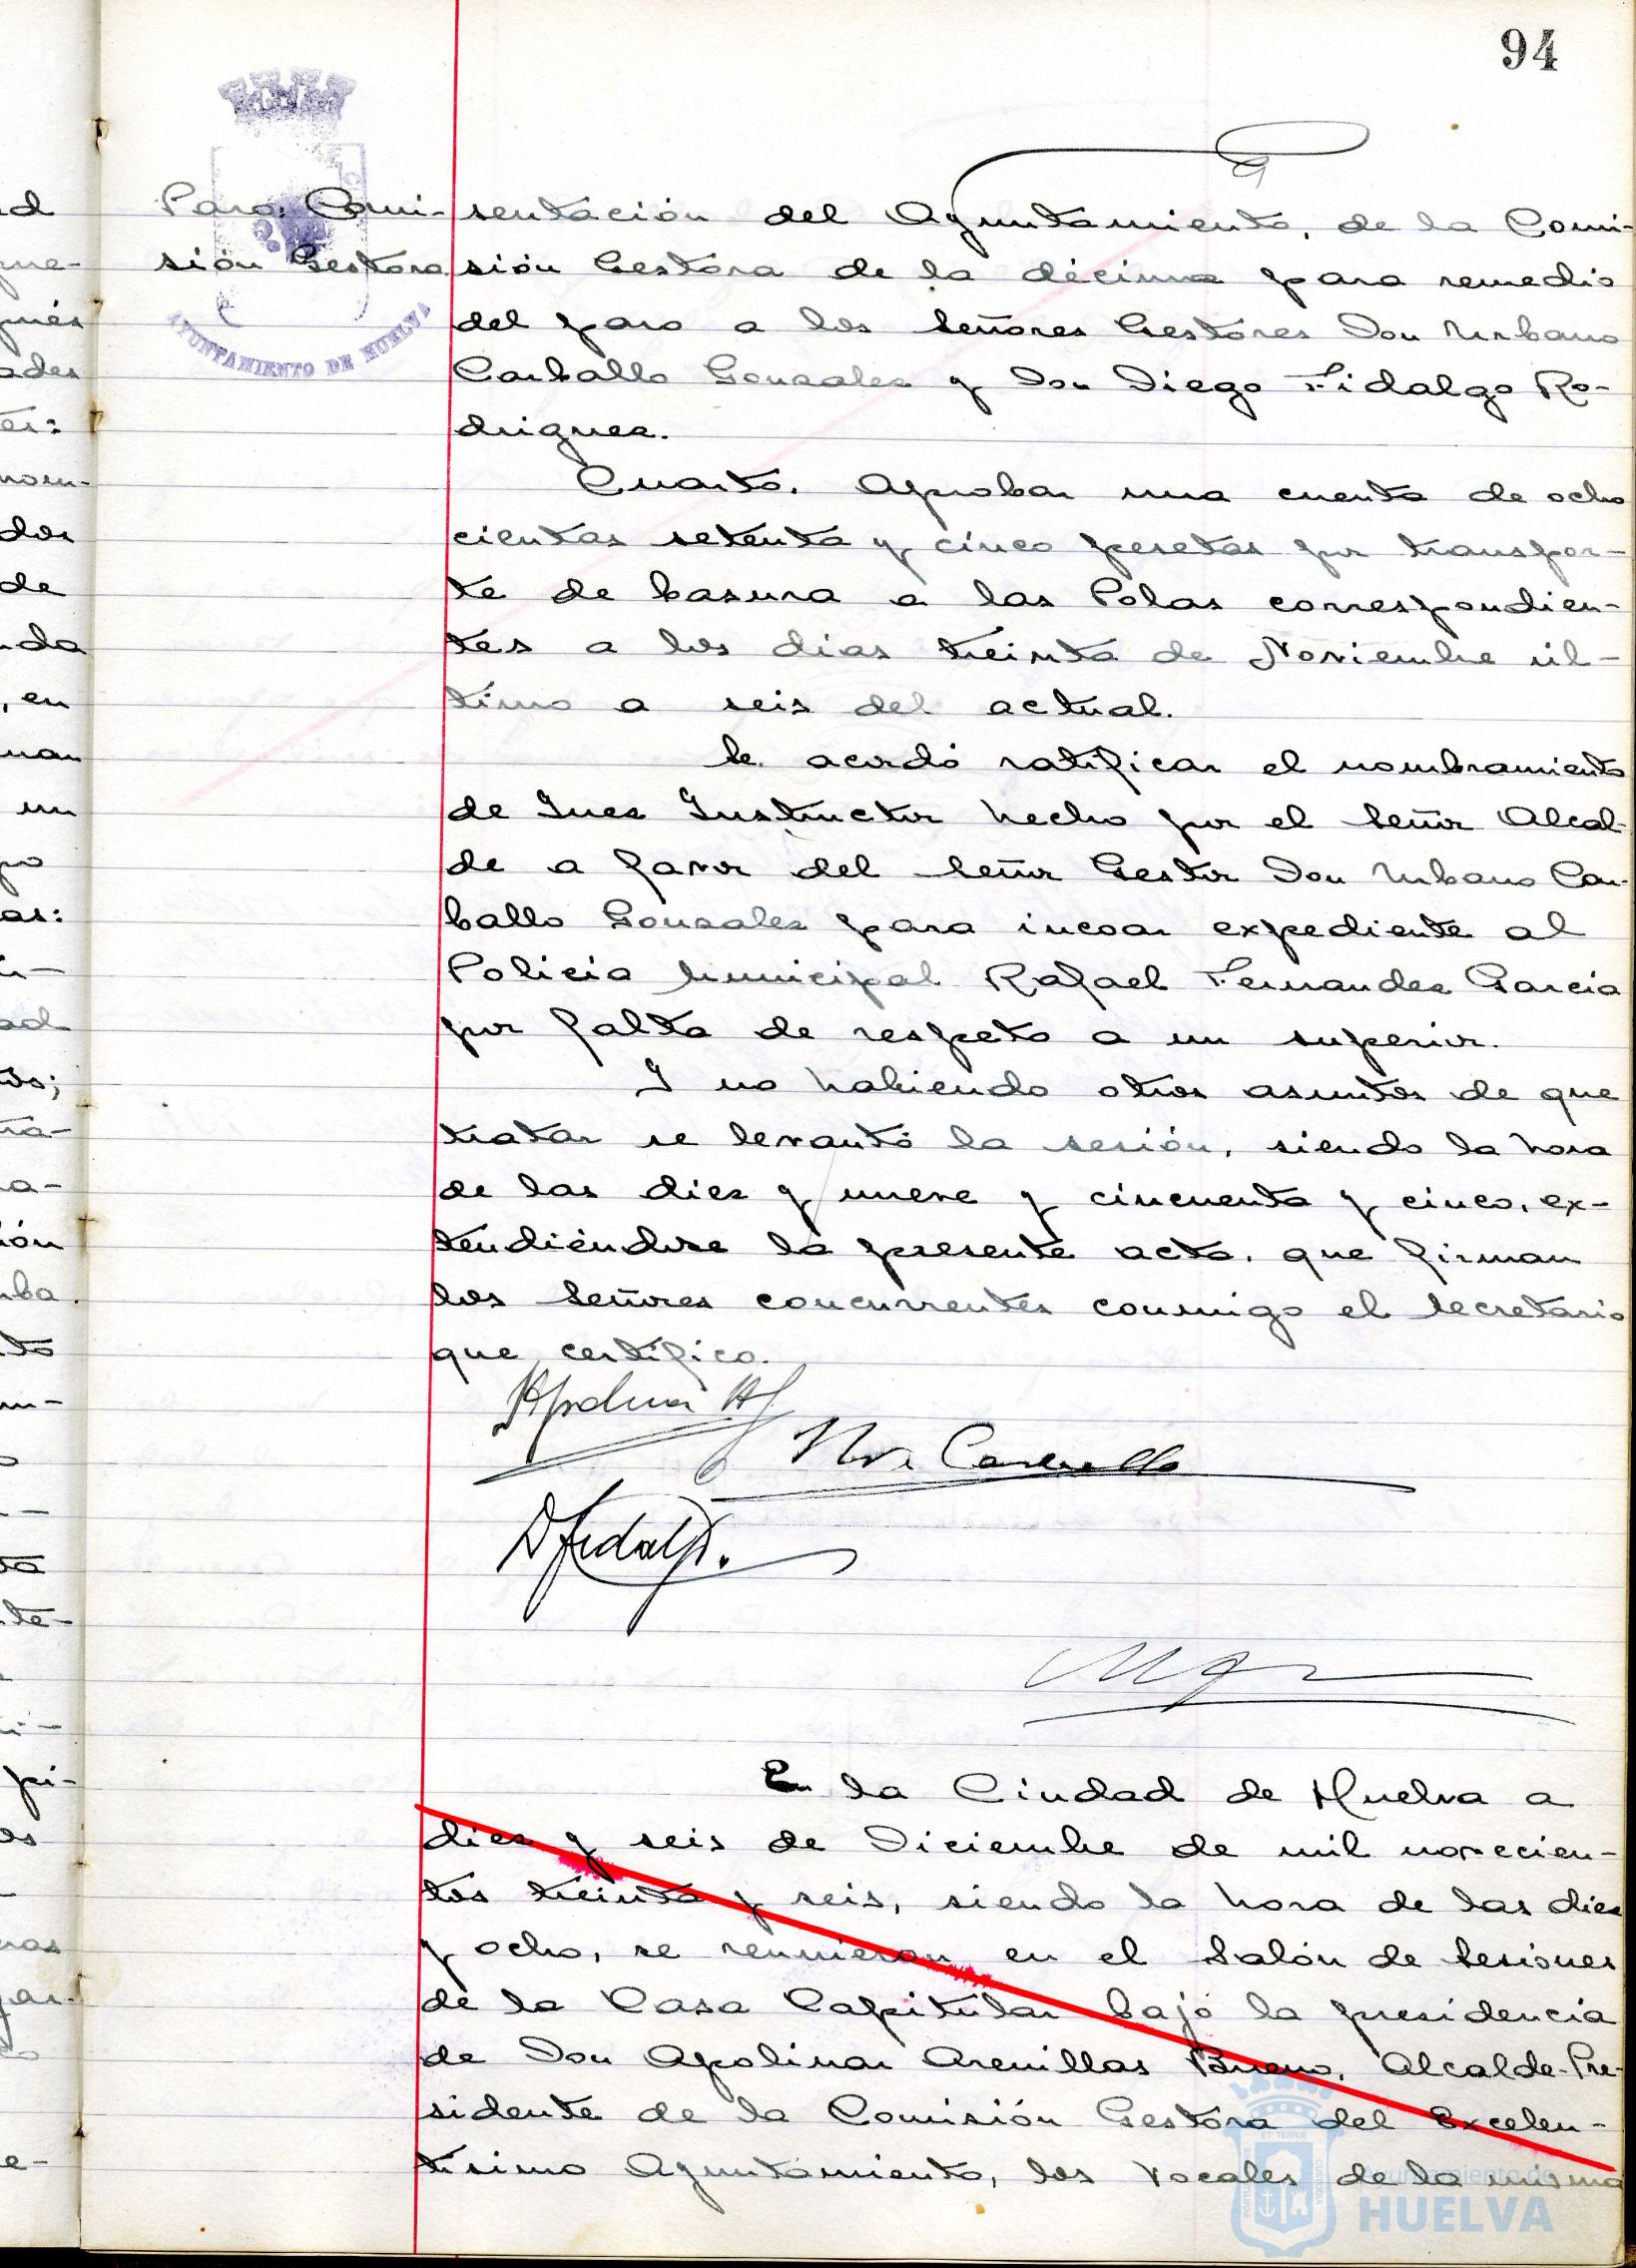 94
Paro, Comi-
sión Gestora
AYUNTAMIENTO DE HUELVA
sentación del Ayuntamiento, de la Comi-
sión Gestora de la décima para remedio
del paro a los Señores Gestores Don Urbano
Carballo Gonzalez y Don Diego Fidalgo Ro-
driguez.
Cuarto. Aprobar una cuenta de ocho
cientas setenta y cinco pesetas por transpor-
te de basura a las Polas correspondien-
tes a los dias treinta de Noviembre úl-
timo a seis del actual.
Se acordó ratificar el nombramiento
de Juez Instructor hecho por el Señor Alcal-
de a favor del Señor Gestor Don Urbano Car-
ballo Gonzalez para incoar expediente al
Policia Municipal Rafael Fernandez Garcia
por falta de respeto a un superior.
Y no habiendo otros asuntos de que
tratar se levantó la sesión, siendo la hora
de las diez y nueve y cincuenta y cinco, ex-
tendiéndose la presente acta, que firman
los Señores concurrentes conmigo el Secretario
que certifico.
Carballo
D Fidalgo.
En la Ciudad de Huelva a
diez y seis de Diciembre de mil novecien-
tos treinta y seis, siendo la hora de las diez
y ocho, se reunieron en el Salón de Sesiones
de la Casa Capitular bajo la presidencia
de Don Apolinar Arenillas Bueno, Alcalde-Pre-
sidente de la Comisión Gestora del Excelen-
tisimo Ayuntamiento, los Vocales de la misma
Ayuntamiento de
HUELVA